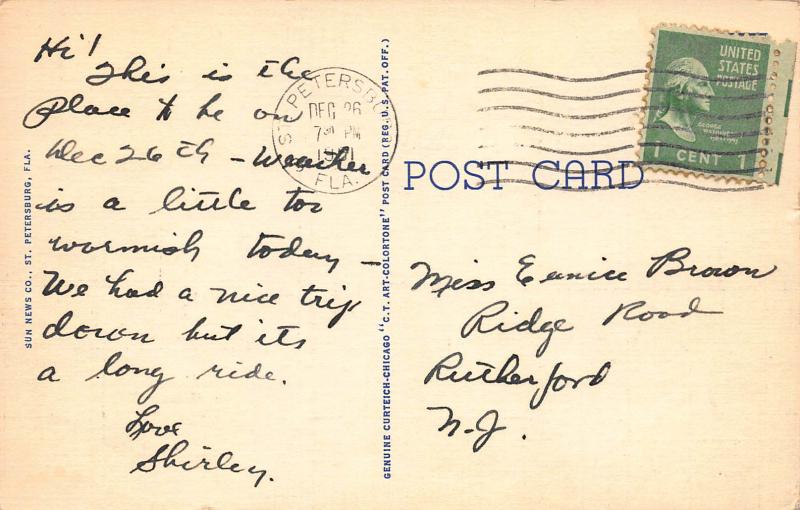 Hi!
This is the
place to be on
Dec 26th - Weather
is a little too
warmish today -
We had a nice trip
down but its
a long ride.
Love
Shirley.
SUN NEWS CO., ST. PETERSBURG, FLA.
GENUINE CURTEICH-CHICAGO "C.T. ART-COLORTONE" POST CARD (REG. U.S. PAT. OFF.)
ST. PETERSBURG
DEC 26
7 PM
FLA.
UNITED
STATES
POSTAGE
GEORGE
WASHINGTON
1 CENT 1
POST CARD
Miss Eunice Brown
Ridge Road
Rutherford
N.J.